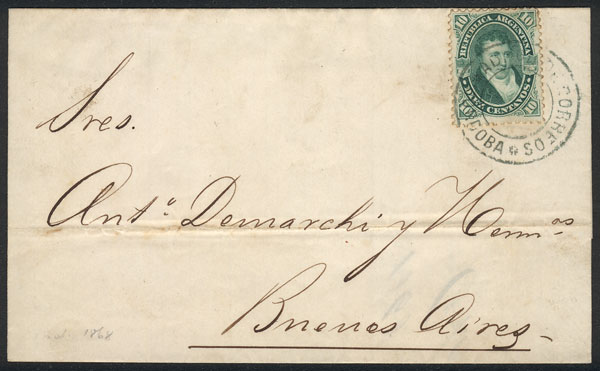 10 REPUBLICA ARGENTINA 10
10 DIEZ CENTAVOS 10
CORREOS
DOBA
Sres.
Antº Demarchi y Hermºs
Buenos Aires-
1868